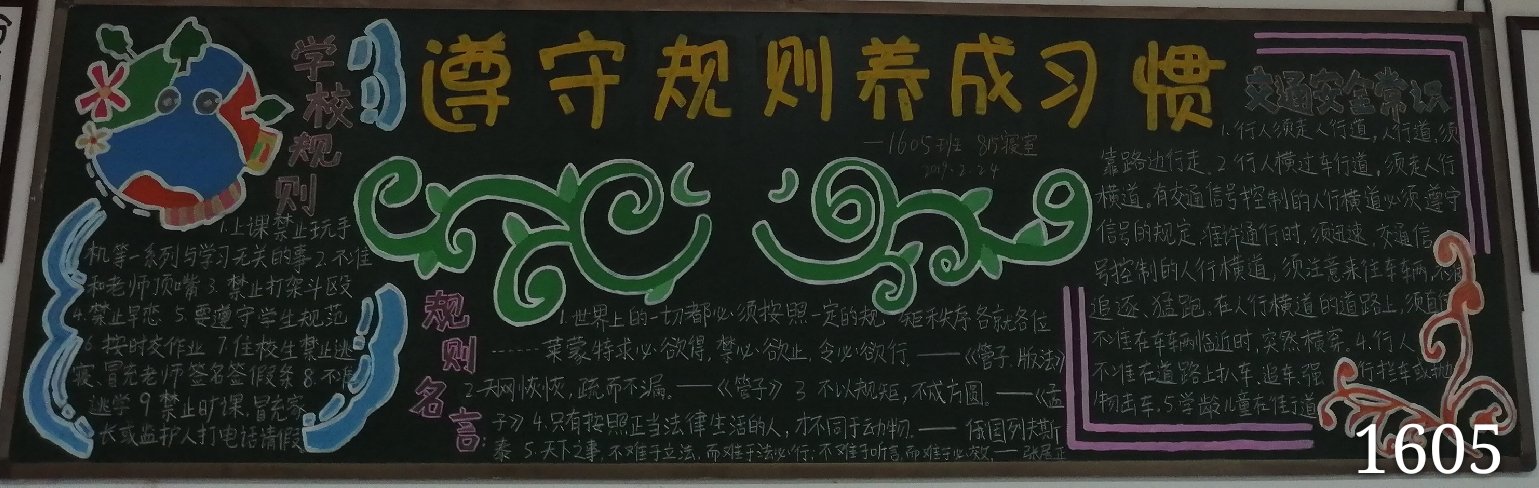 遵守规则养成习惯
一1605班 815寝室
2019.2.24
学校规则
1.上课禁止玩手
机等一系列与学习无关的事 2.不准
和老师顶嘴 3.禁止打架斗殴
4.禁止早恋 5.要遵守学生规范
6.按时交作业 7.住校生禁止逃
寝、冒充老师签名签假条 8.不准
逃学 9.禁止旷课、冒充家
长或监护人打电话请假
规则名言:
1.世界上的一切都必须按照一定的规矩秩序各就各位
……莱蒙特 求必欲得,禁必欲止,令必欲行 ——《管子.版法》
2.天网恢恢,疏而不漏。——《管子》 3.不以规矩,不成方圆。——《孟
子》 4.只有按照正当法律生活的人,才不同于动物.—— 俄国列夫斯
泰 5.天下之事,不难于立法,而难于法必行;不难于听言,而难于必效,—— 张居正
交通安全常识
1.行人须走人行道,人行道,须
靠路边行走.2.行人横过车行道,须走人行
横道。有交通信号控制的人行横道必须遵守
信号的规定,准许通行时,须迅速,交通信
号控制的人行横道,须注意来往车辆,不准
追逐、猛跑.在人行横道的道路上,须直
不准在车辆临近时,突然横穿.4.行人
不准在道路上扒车、追车、强行拦车或抛
物击车.5.学龄儿童在街道
1605